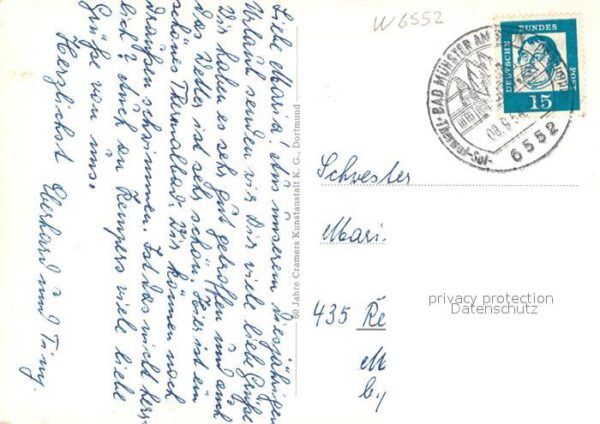 Liebe Maria! Aus unserem diesjährigen
Urlaub senden wir Dir viele liebe Grüße
Wir haben es sehr gut getroffen und auch
das Wetter ist sehr schön. Hier ist ein
schönes Thermalbad. Wir können noch
draußen schwimmen. Ist das nicht herr-
lich? Auch an Kempers viele liebe
Grüße von uns.
Herzlichst Eberhard und
60 Jahre Cramers Kunstanstalt K. G., Dortmund
W6552
BAD MÜNSTER AM
Thermal-Sol-
6552
DEUTSCHE BUNDES POST
15
Schwester
Mari
435 Re
M
by
privacy protection
Datenschutz